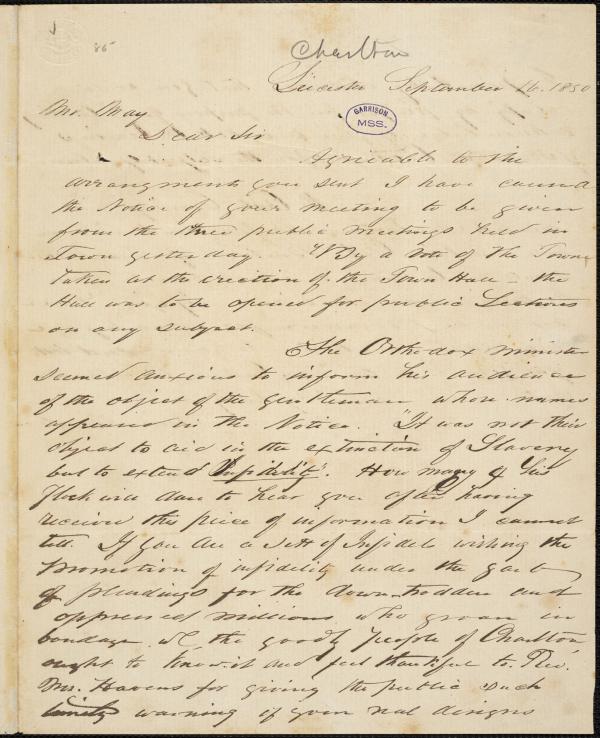 85
Charlton
Leicester September 16. 1850
GARRISON
MSS.
Mr. May
Dear Sir
Agricable to the
arrangments you sent I have caused
the Notice of your meeting to be given
from the three public meetings held in
Town yesterday. By a vote of the Town
taken at the erection of the Town Hall - the
Hall was to be opened for public Lectures
on any subject.
The Orthodox minister
seemed anxious to inform his audience
of the object of the gentleman whose names
appeared in the Notice. "It was not their
object to aid in the extinction of Slavery
but to extend Infidelity". How many of his
flock will dare to hear you after having
receive this piece of information I cannot
tell. If you are a sett of Infidels wishing the
promotion of infidelity under the garb
of pleadings for the down-trodden and
oppressed millions who groan in
bondage the goodly people of Charlton
ought to know it and feel thankful to Rev.
Mr. Havens for giving the public such
timely warning of your real designs